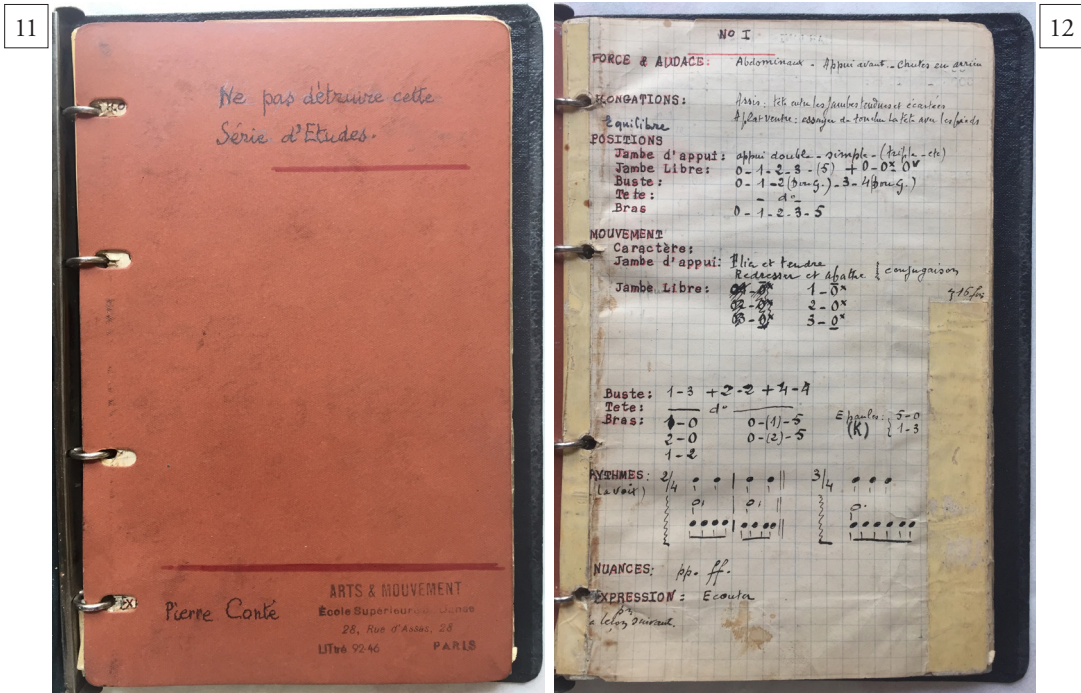 11
Ne pas détruire cette
Série d'Etudes.
Pierre Conté
ARTS & MOUVEMENT
École Supérieure de Danse
28, Rue d'Assas, 28
LITtré 92-46 PARIS
12
No I
FORCE & AUDACE: Abdominaux - Appui avant - chutes en arrière
ELONGATIONS: Assis: tête entre les jambes tendues et écartées
A plat ventre: essayer de toucher la tête avec les pieds
Equilibre
POSITIONS
Jambe d'appui: appui double - simple - (triple - etc)
Jambe Libre: 0 - 1 - 2 - 3 - (5) + 0 - 0x 0x
Buste: 0 - 1 - 2 - 3 - 4
Tete: - do -
Bras 0 - 1 - 2 - 3 - 5
MOUVEMENT
Caractère:
Jambe d'appui: Plier et tendre
Redresser et abattre } conjugaison
Jambe Libre: 1 - 0x
2 - 0x
3 - 0x
Buste: 1 - 3 + 2 - 2 + 4 - 4
Tete: do
Bras: 1 - 0 0 - (1) - 5 Epaules: { 5 - 0
2 - 0 0 - (2) - 5 (K) { 1 - 3
1 - 2
RYTHMES: 2/4 3/4
(la voix)
NUANCES: pp. ff.
EXPRESSION: Ecouter
leçon suivant.